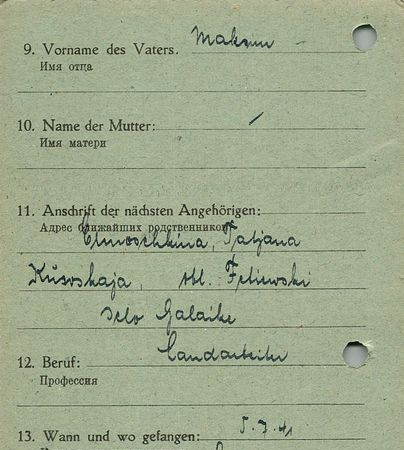 9. Vorname des Vaters. Maksim
Имя отца
10. Name der Mutter:
Имя матери
11. Anschrift der nächsten Angehörigen:
Адрес ближайших родственников
Tatjana
obl.
selo Galaike
12. Beruf: Landarbeiter
Профессия
13. Wann und wo gefangen: 5.7.41